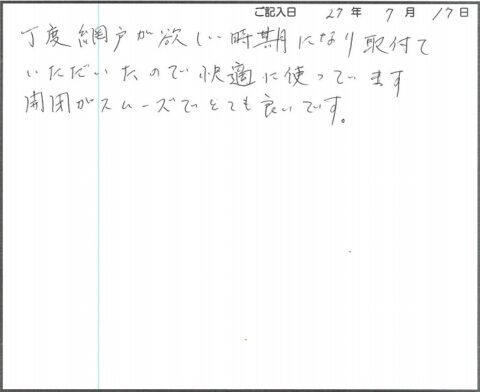 ご記入日 27年 7月 17日
丁度網戸が欲しい時期になり取付て
いただいたので快適に使っています
開閉がスムーズでとても良いです。